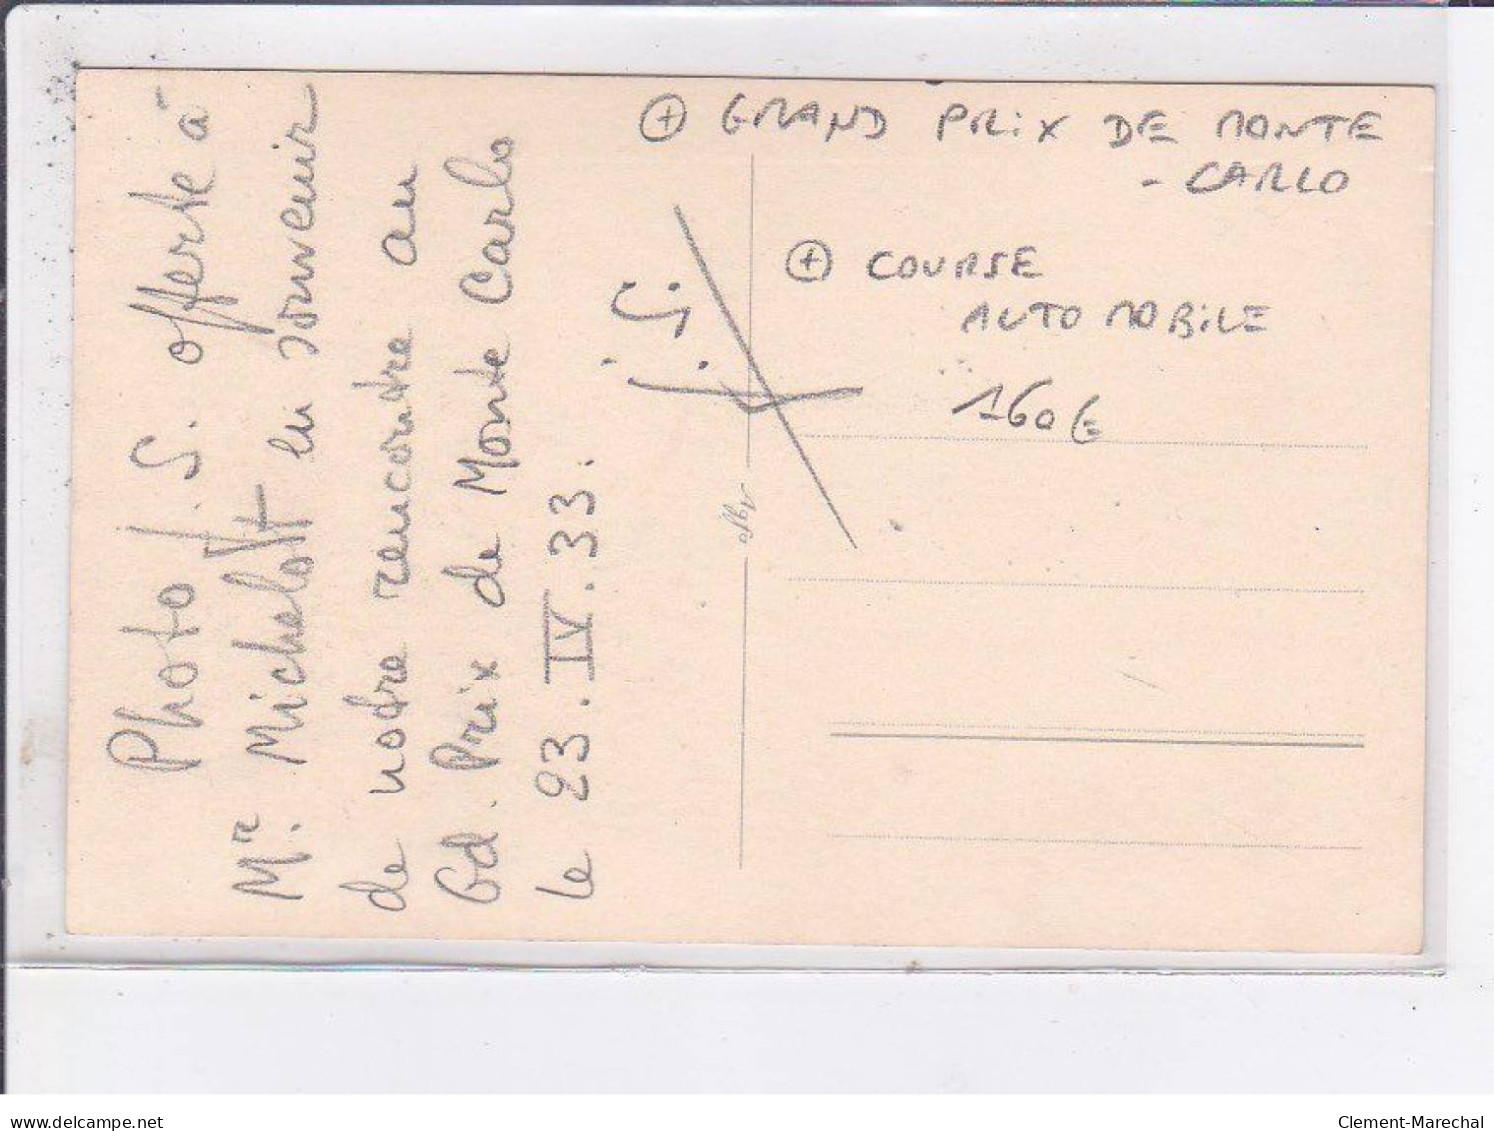 Photo J. S. offerte à
Mr. Michelott en souvenir
de notre rencontre au
Gd. Prix de Monte Carlo
le 23. IV. 33.
+ GRAND PRIX DE MONTE
- CARLO
+ COURSE
AUTOMOBILE
160€
delcampe.net
Clement-Marechal